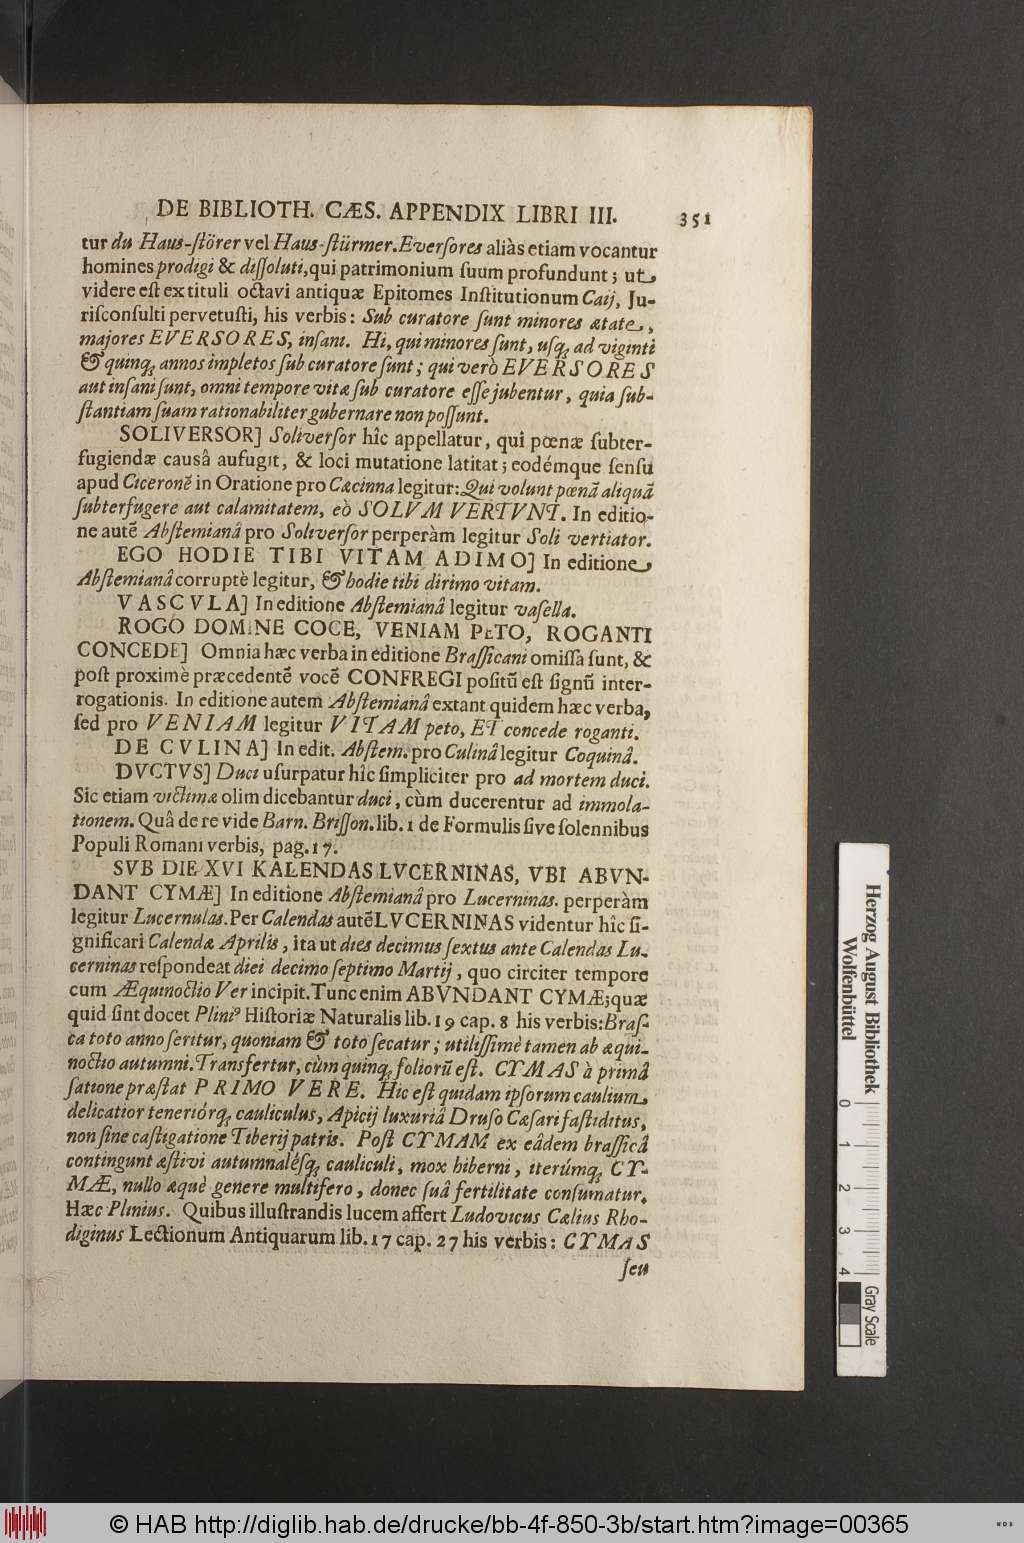 DE BIBLIOTH. CÆS. APPENDIX LIBRI III. 351
tur du Haus-ſtörer vel Haus-ſtürmer. Everſores aliàs etiam vocantur
homines prodigi & diſſoluti, qui patrimonium ſuum profundunt; ut
videre eſt ex tituli octavi antiquæ Epitomes Inſtitutionum Caij, Ju-
riſconſulti pervetuſti, his verbis: Sub curatore ſunt minores ætate,
majores EVERSORES, inſani. Hi, qui minores ſunt, uſq; ad viginti
& quinq; annos impletos ſub curatore ſunt; qui verò EVERSORES
aut inſani ſunt, omni tempore vitæ ſub curatore eſſe jubentur, quia ſub-
ſtantiam ſuam rationabiliter gubernare non poſſunt.
SOLIVERSOR] Soliverſor hîc appellatur, qui pœnæ ſubter-
fugiendæ causâ aufugit, & loci mutatione latitat; eodémque ſenſu
apud Ciceronē in Oratione pro Cæcinna legitur: Qui volunt pœnā aliquā
ſubterfugere aut calamitatem, eò SOLVM VERTVNT. In editio-
ne autē Abſtemianâ pro Soliverſor perperàm legitur Soli vertiator.
EGO HODIE TIBI VITAM ADIMO] In editione
Abſtemianâ corruptè legitur, & hodie tibi dirimo vitam.
VASCVLA] In editione Abſtemianâ legitur vaſella.
ROGO DOMINE COCE, VENIAM PETO, ROGANTI
CONCEDE] Omnia hæc verba in editione Braſſicani omiſſa ſunt, &
poſt proximè præcedentē vocē CONFREGI poſitū eſt ſignū inter-
rogationis. In editione autem Abſtemianâ extant quidem hæc verba,
ſed pro VENIAM legitur VITAM peto, ET concede roganti.
DE CVLINA] In edit. Abſtem. pro Culinâ legitur Coquinâ.
DVCTVS] Duci uſurpatur hîc ſimpliciter pro ad mortem duci.
Sic etiam victimæ olim dicebantur duci, cùm ducerentur ad immola-
tionem. Quâ de re vide Barn. Briſſon. lib. 1 de Formulis ſive ſolennibus
Populi Romani verbis, pag. 17.
SVB DIE XVI KALENDAS LVCERNINAS, VBI ABVN-
DANT CYMÆ] In editione Abſtemianâ pro Lucerninas. perperàm
legitur Lucernulas. Per Calendas autē LVCERNINAS videntur hîc ſi-
gnificari Calendæ Aprilis, ita ut dies decimus ſextus ante Calendas Lu-
cerninas reſpondeat diei decimo ſeptimo Martij, quo circiter tempore
cum Æquinoctio Ver incipit. Tunc enim ABVNDANT CYMÆ; quæ
quid ſint docet Pliniꝰ Hiſtoriæ Naturalis lib. 19 cap. 8 his verbis: Braſſi-
ca toto anno ſeritur, quoniam & toto ſecatur; utiliſſimè tamen ab æqui-
noctio autumni. Transfertur, cùm quinq; foliorū eſt. CYMAS à primâ
ſatione præſtat PRIMO VERE. Hic eſt quidam ipſorum caulium
delicatior teneriórq; cauliculus, Apicij luxuriâ Druſo Cæſari faſtiditus,
non ſine caſtigatione Tiberij patris. Poſt CYMAM ex eâdem braſſicâ
contingunt æſtivi autumnaléſq; cauliculi, mox hiberni, iterúmq; CY-
MÆ, nullo æquè genere multifero, donec ſuâ fertilitate conſumatur.
Hæc Plinius. Quibus illuſtrandis lucem affert Ludovicus Cælius Rho-
diginus Lectionum Antiquarum lib. 17 cap. 27 his verbis: CYMAS
ſeu
Herzog August Bibliothek
Wolfenbüttel
0 1 2 3 4
Gray Scale
© HAB http://diglib.hab.de/drucke/bb-4f-850-3b/start.htm?image=00365